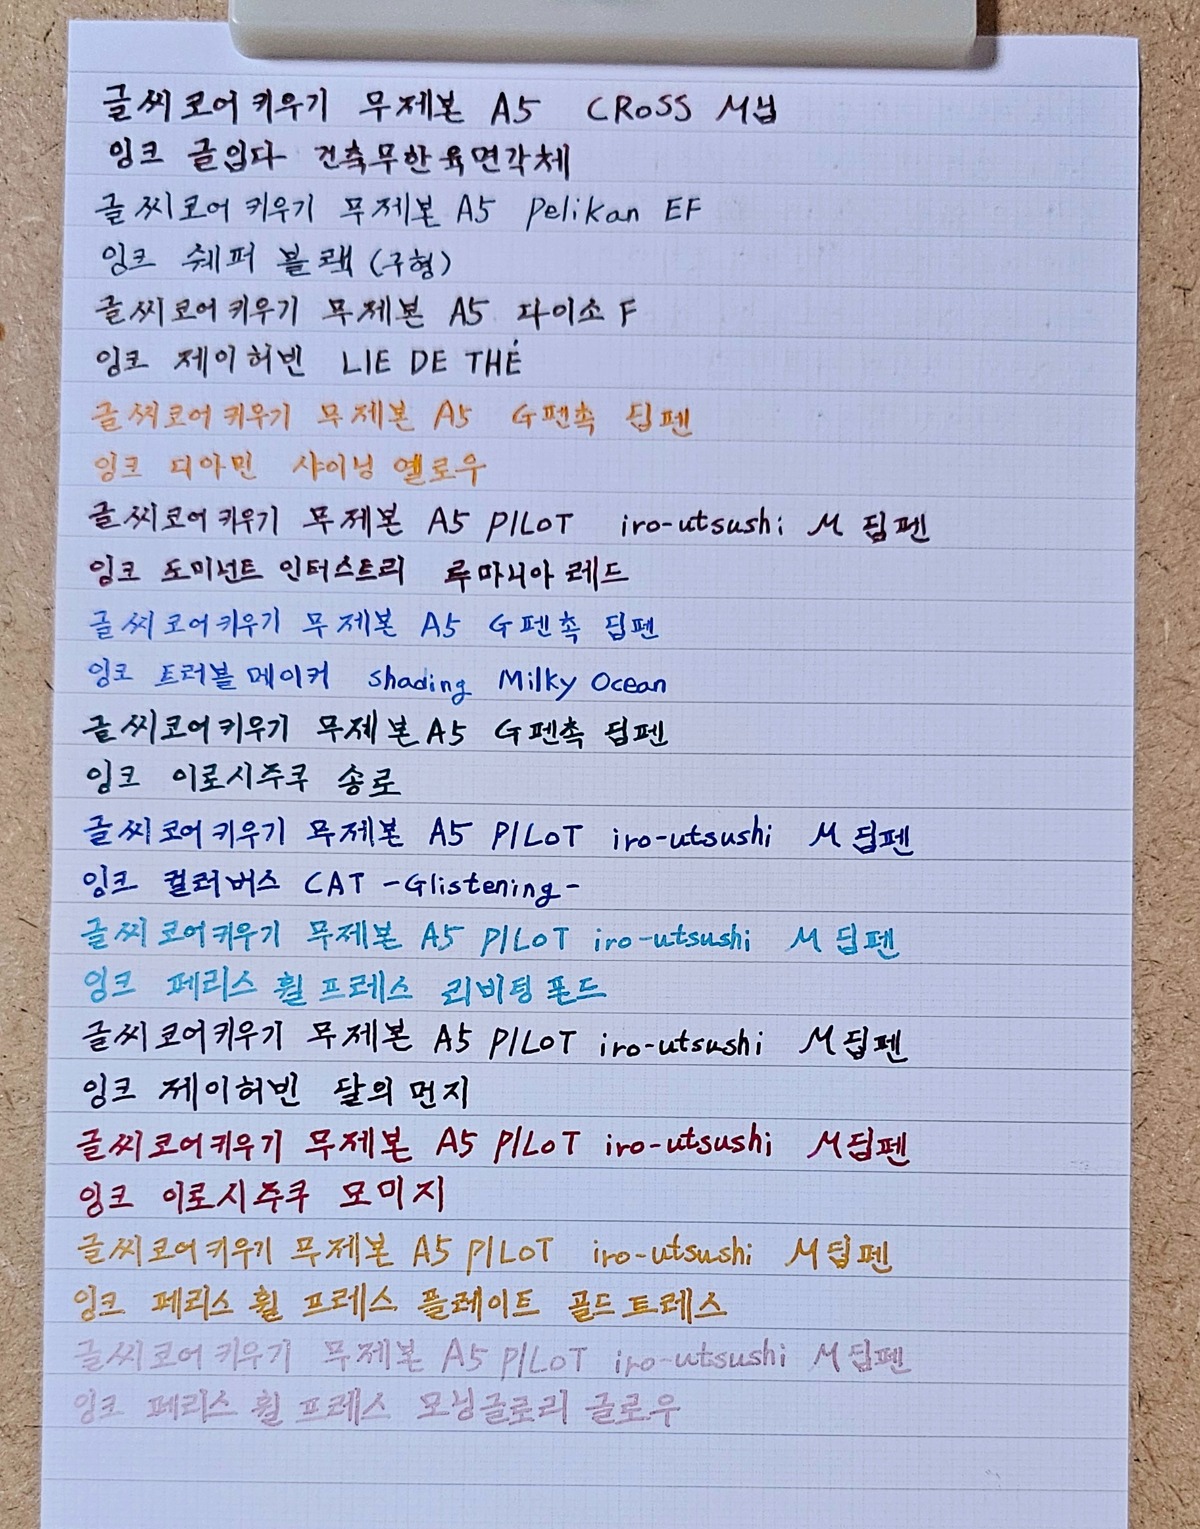 글씨코어키우기 무제본 A5 CROSS M닙
잉크 글입다 건축무한육면각체
글씨코어키우기 무제본 A5 Pelikan EF
잉크 쉐퍼 블랙 (구형)
글씨코어키우기 무제본 A5 다이소 F
잉크 제이허빈 LIE DE THÉ
글씨코어키우기 무제본 A5 G펜촉 딥펜
잉크 디아민 샤이닝 옐로우
글씨코어키우기 무제본 A5 PILOT iro-utsushi M 딥펜
잉크 도미넌트 인더스트리 루마니아 레드
글씨코어키우기 무제본 A5 G펜촉 딥펜
잉크 트러블메이커 shading Milky Ocean
글씨코어키우기 무제본 A5 G펜촉 딥펜
잉크 이로시주쿠 송로
글씨코어키우기 무제본 A5 PILOT iro-utsushi M 딥펜
잉크 컬러버스 CAT -Glistening-
글씨코어키우기 무제본 A5 PILOT iro-utsushi M 딥펜
잉크 페리스 휠 프레스 리비팅 폰드
글씨코어키우기 무제본 A5 PILOT iro-utsushi M딥펜
잉크 제이허빈 달의 먼지
글씨코어키우기 무제본 A5 PILOT iro-utsushi M딥펜
잉크 이로시주쿠 모미지
글씨코어키우기 무제본 A5 PILOT iro-utsushi M딥펜
잉크 페리스 휠 프레스 플레이트 골드 트레스
글씨코어키우기 무제본 A5 PILOT iro-utsushi M딥펜
잉크 페리스 휠 프레스 모닝글로리 글로우